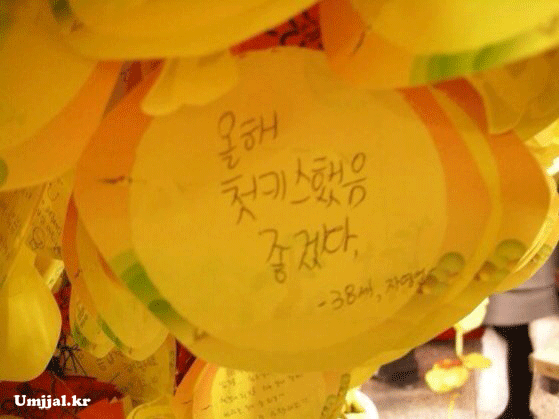 올해
첫키스했음
좋겠다.
-38세, 자영업
Umjjal.kr